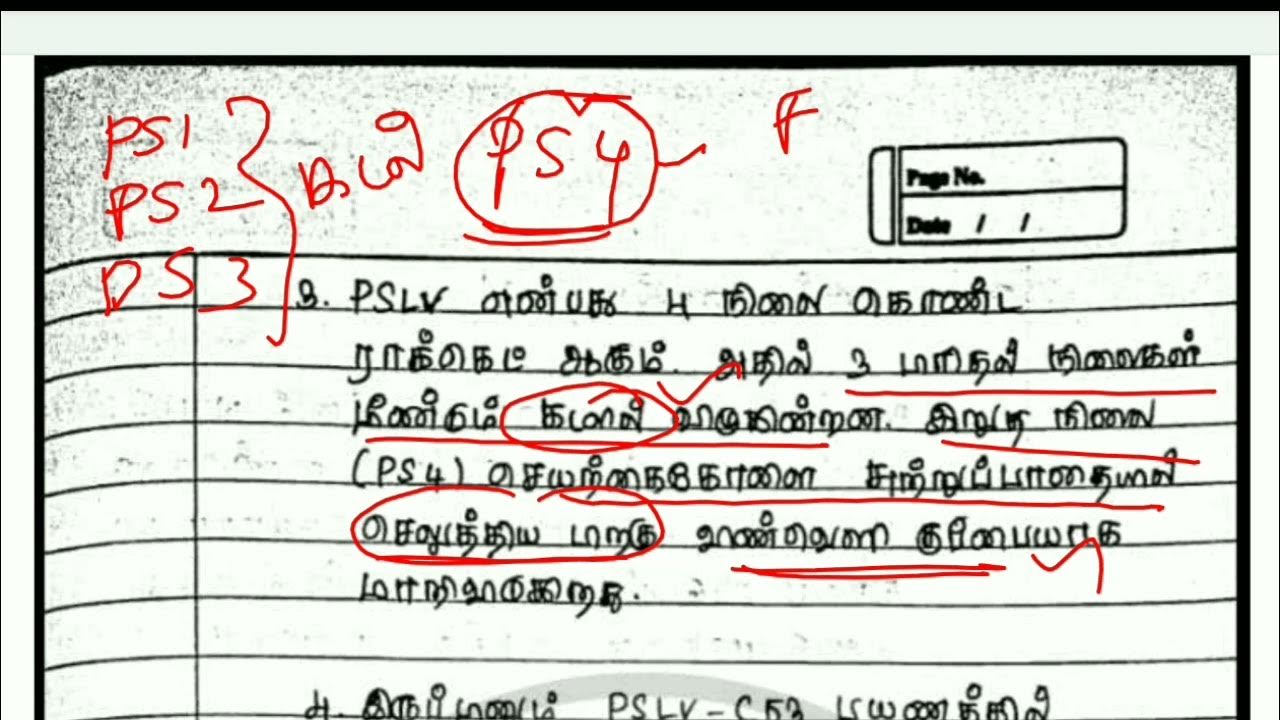 PS1
PS2
PS3
கடல்
PS4
F
Page No.
Date / /
3. PSLV என்பது 4 நிலை கொண்ட
ராக்கெட் ஆகும். அதில் 3 முதல் நிலைகள்
மீண்டும் கடலில் விழுகின்றன. இறுதி நிலை
(PS4) செயற்கைகோளை சுற்றுப்பாதையில்
செலுத்திய பிறகு விண்வெளி குப்பையாக
மாறிவிடுகிறது.
4. இருப்பினும் PSLV-C53 பயணத்தில்